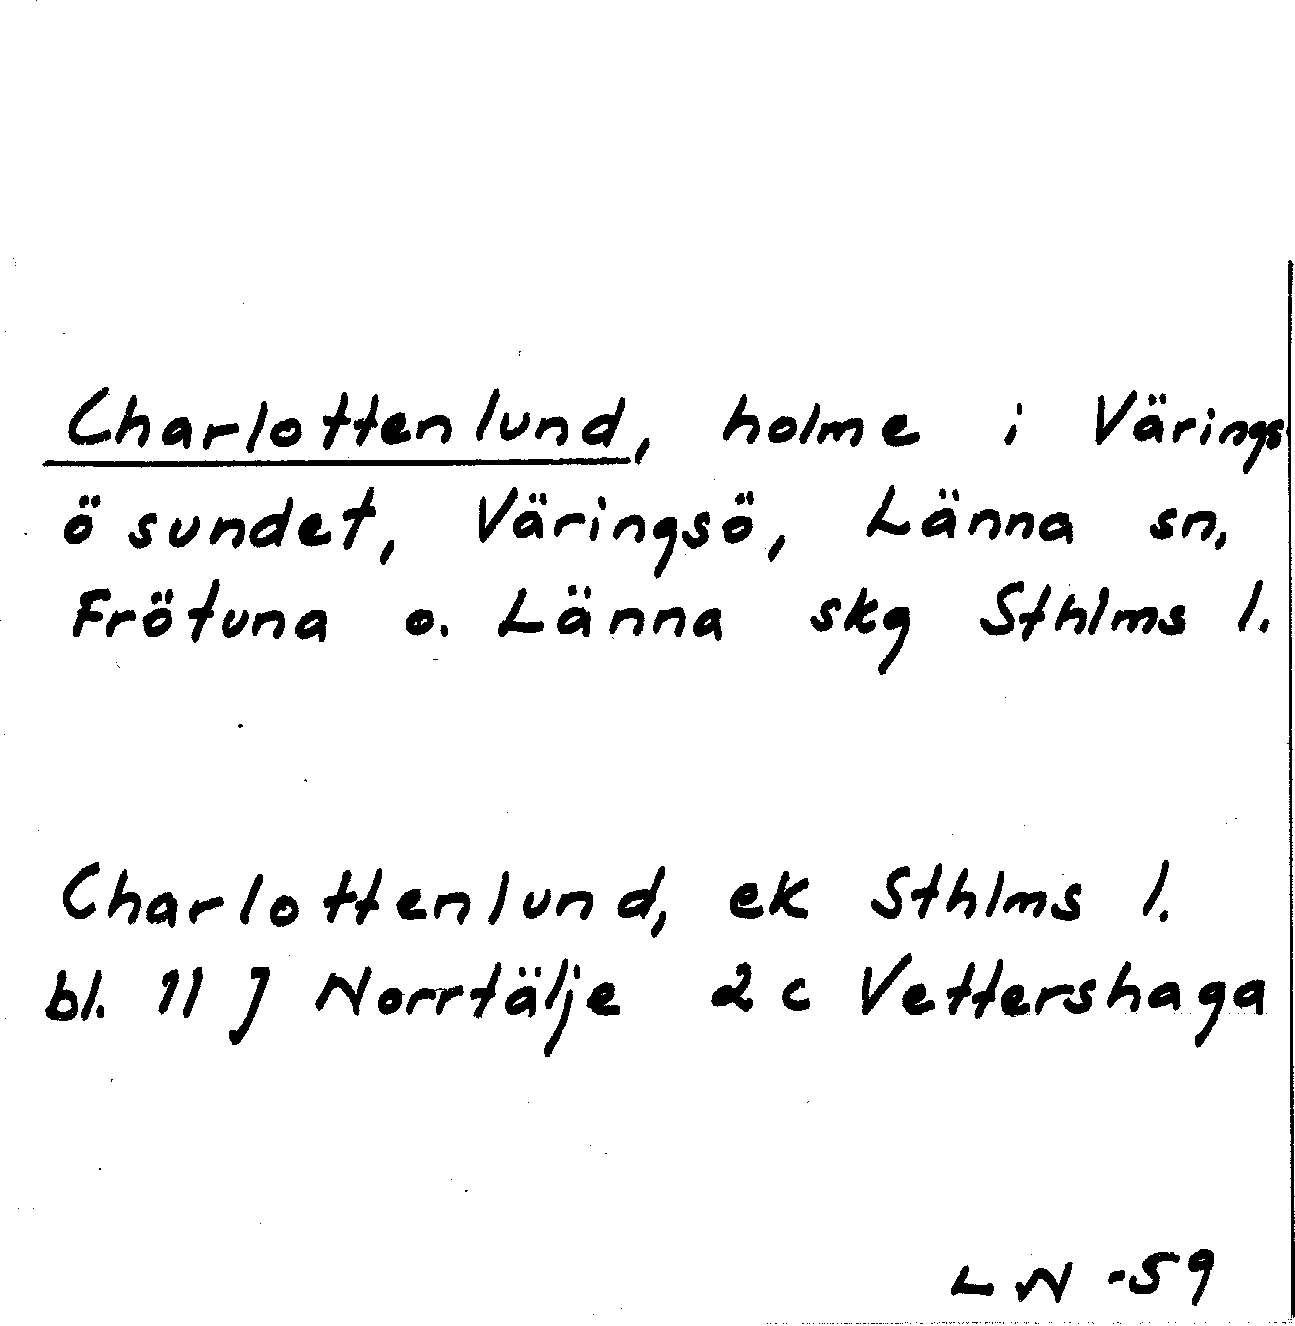 Charlottenlund, holme i Värings
ösundet, Väringsö, Länna sn,
Frötuna o. Länna skg Sthlms l.
Charlottenlund, ek Sthlms l.
bl. 11 J Norrtälje 2c Vettershaga
LN -59